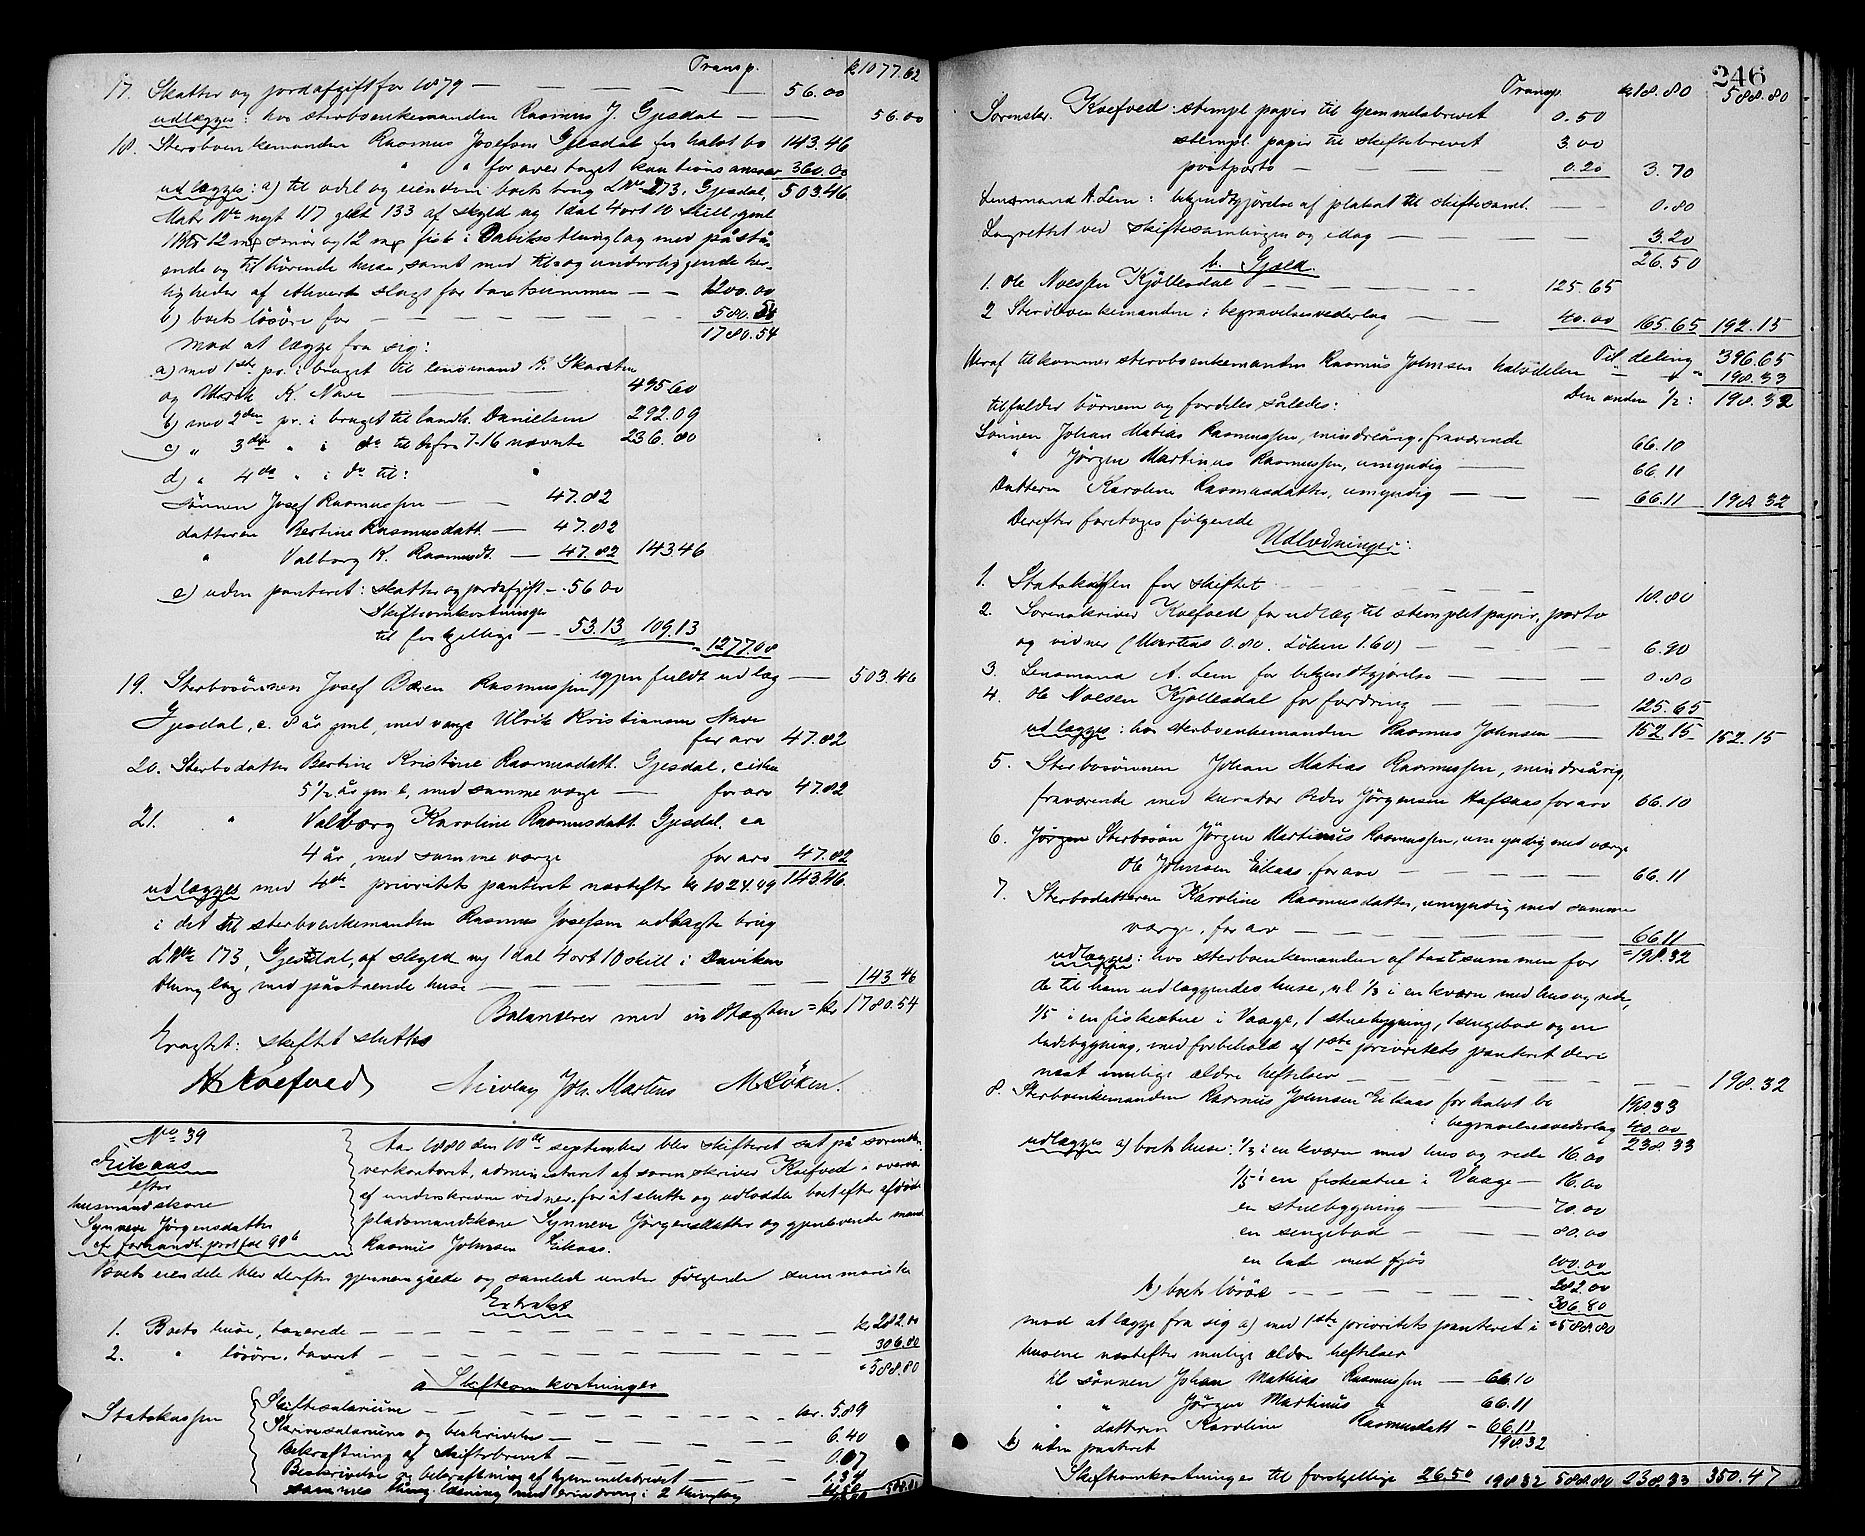 Transp. kr 1077.62
17. Skatter og jordafgift for 1879 — 56.00
udlægges: hos sterboenkemanden Rasmus J. Gjesdal — 56.00
18. Sterboenkemanden Rasmus Josefsen Gjesdal for halvt bo 143.46
" " for overtaget kautionsansvar 360.00
udlægges: a) til odel og eiendom boets brug LNr 173, Gjesdal, 503.46
Matr Nr nyt 117 glt 133 af skyld ny 1 dal 4 ort 10 skill, gml
12 mrk smör og 12 mrk fisk i Daviks thinglag med påstå-
ende og tilhörende huse, samt med til- og underliggende her-
ligheder af ethvert slags for taxtsummen — 1200.00
b) boets lösöre for — 580.54
1780.54
mod at lægge fra sig:
a) med 1ste pr. i bruget til lensmand K. Skarsten
og Ulrik K. Nave — 495.60
b) med 2den pr. i bruget til landh. Danielsen 292.09
c) " 3die " i do til de fra 7-16 nævnte 236.80
d) " 4de " i do til:
sönnen Josef Rasmussen — 47.82
datteren Bertine Rasmusdatt. — 47.82
" Valborg K. Rasmusdt. — 47.82 143.46
e) uden panteret: skatter og jordafgift — 56.00
Skifteomkostninger
til forskjellige — 53.13 109.13
1277.08
igjen fuldt udlæg — 503.46
19. Sterbosönnen Josef Bæren Rasmussen
Gjesdal, c. 8 år gml, med værge Ulrik Kristiansen Nave
for arv 47.82
20. Sterbodatter Bertine Kristine Rasmusdatt. Gjesdal, cirka
5 1/2 år gml, med samme værge — for arv 47.82
21. " Valborg Karoline Rasmusdatt. Gjesdal, ca
4 år, med samme værge for arv 47.82
udlægges med 4de prioritets panteret næstefter kr 1024.49 143.46
i det til sterboenkemanden Rasmus Josefsen udlagte brug
LNr 173, Gjesdal, af skyld ny 1 dal 4 ort 10 skill i Daviken
thinglag med påstående huse — 143.46
Balancerer med indtægten = kr 1780.54
Eragtet: skiftet sluttes
Koefoed Nicolay Joh. Martens M. Löken.
No 39
Eikaas
efter
husmandskone
Synneve Jörgensdatter
cf forhandl. prot fol 99b
Aar 1880 den 10de september blev skifteret sat på sorenskri-
verkontoret, administreret af sorenskriver Koefoed i overvær
af underskrevne vidner, for at slutte og udlodde boet efter afdöde
pladsmandskone Synneve Jörgensdatter og gjenlevende mand
Rasmus Johnsen Eikaas.
Boets eiendele blev derefter gjennemgåede og samlede under fölgende summariske
Extrakt
1. Boets huse, taxerede — kr 282.00
2. " lösöre, taxeret — 306.80
= 588.80
a Skifteomkostninger
Statskassen
Skiftesalarium — kr. 5.89
Skriversalarium og beskrivelse — 6.40
Bekræftning af skiftebrevet — 0.07
Beskrivelse og bekræftning af hjemmelsbrevet — 1.34
sammes thinglæsning med erindring i 2 thinglag
246
Transp. kr 18.80 588.80
Sorenskr. Koefoed: stempl papir til hjemmelsbrevet 0.50
stempl. papir til skiftebrevet 3.00
postporto — 0.20 3.70
Lensmand A. Lem: bekjendtgjörelse af plakat til skiftesaml. — 0.80
Lagrettet ved skiftesamlingen og idag — 3.20
26.50
b. Gjæld.
1. Ole Moessen Kjöllesdal — 125.65
2 Sterboenkemanden i begravelsesvederlag — 40.00 165.65 192.15
Til deling 396.65
Heraf tilkommer sterboenkemanden Rasmus Johnsen halvdelen — 198.33
Den anden 1/2: 198.32
tilfalder börnene og fordeles således:
Sönnen Johan Matias Rasmussen, mindreårig, fraværende 66.10
" Jörgen Martinus Rasmussen, umyndig — 66.11
Datteren Karoline Rasmusdatter, umyndig — 66.11 198.32
Derefter foretages fölgende
Udlodninger:
1. Statskassen for skiftet — 18.80
2. Sorenskriver Koefoed for udlæg til stemplet papir, porto
og vidner (Martens 0.80. Löken 1.60) — 6.90
3. Lensmand A. Lem for bekjendtgjörelse — 0.80
4. Ole Moessen Kjöllesdal for fordring — 125.65
udlægges: hos sterboenkemanden Rasmus Johnsen — 152.15 152.15
5. Sterbosönnen Johan Matias Rasmussen, mindreårig,
fraværende med kurator Peder Jörgensen Hafsaas for arv 66.10
6. Jörgen Sterbosön Jörgen Martinus Rasmussen, umyndig med værge
Ole Johnsen Eikaas, for arv — 66.11
7. Sterbodatteren Karoline Rasmusdatter, umyndig med samme
værge, for arv — 66.11
udlægges: hos sterboenkemanden af taxtsummen for = 198.32
de til ham udlæggendes huse, nl 1/3 i en kværn med hus og rede,
1/5 i en fiskestue i Vaage, 1 stuebygning, 1 sengebod og en
ladebygning, med forbehold af 1ste prioritets panteret deri
næst mulige ældre heftelser — 198.32
8. Sterboenkemanden Rasmus Johnsen Eikaas for halvt bo 198.33
i begravelsesvederlag 40.00
udlægges a) boets huse: 1/3 i en kværn med hus og rede 16.00 238.33
1/5 i en fiskestue i Vaage — 16.00
en stuebygning — 70.00
en sengebod — 80.00
en lade med fjös 100.00
282.00
b) boets lösöre — 306.80
= 588.80
mod at lægge fra sig a) med 1ste prioritets panteret i
husene næstefter mulige ældre heftelser
til sönnen Johan Mathias Rasmussen — 66.10
" " Jörgen Martinus " 66.11
" datteren Karoline Rasmusdatt — 66.11
198.32
b) uden panteret
Skifteomkostninger til forskjellige 26.50 198.32 588.80 238.33 350.47